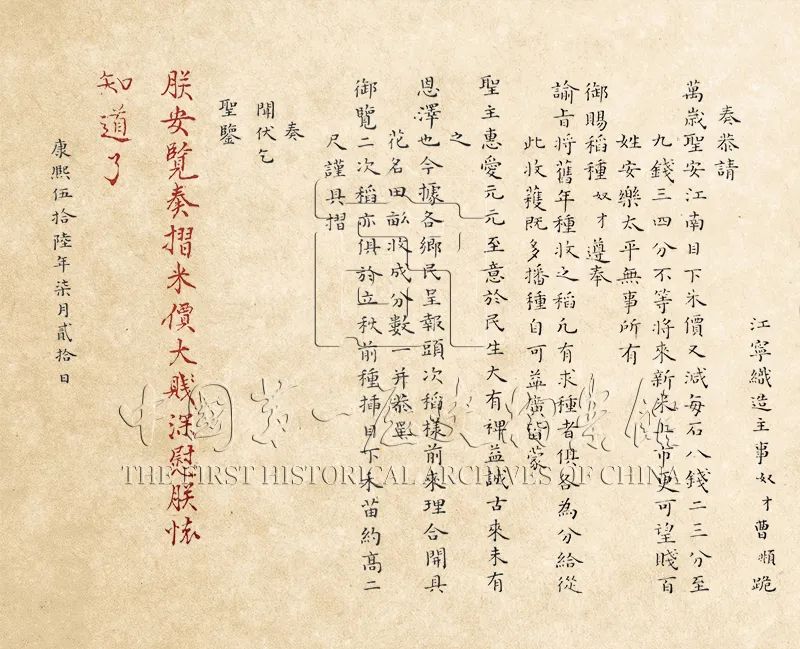 江寧織造主事奴才曹頫跪
奏恭請
萬歲聖安江南目下米價又減每石八錢二三分至
九錢三四分不等將來新米上市更可望賤百
姓安樂太平無事所有
御賜稻種奴才遵奉
諭旨將舊年種收之稻凡有求種者俱各為分給從
此收穫既多播種自可益廣皆蒙
聖主惠愛元元至意於民生大有裨益誠古來未有
之
恩澤也今據各鄉民呈報頭次稻樣前來理合開具
花名田畝收成分數一并恭呈
御覽二次稻亦俱於立秋前種插目下禾苗約高二
尺謹具摺
奏
聞伏乞
聖鑒
朕安覽奏摺米價大賤深慰朕懷
知道了
康熙伍拾陸年柒月貳拾日
中國第一歷史檔案館
THE FIRST HISTORICAL ARCHIVES OF CHINA